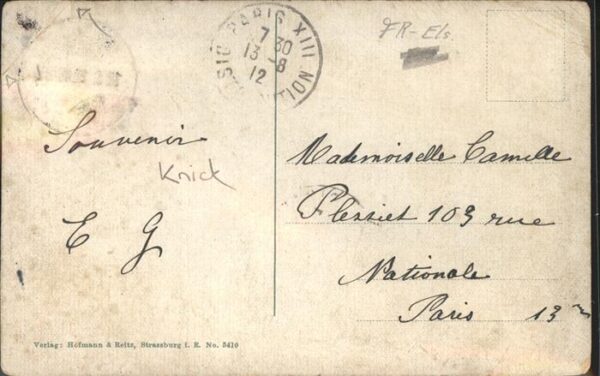 PARIS XIII
7 30
13 -8
12
FR-Els.
Souvenir
Knick
E G
Mademoiselle Camille
103 rue
Nationale
Paris 13
Verlag: Hofmann & Reitz, Strassburg i. E. No. 5410